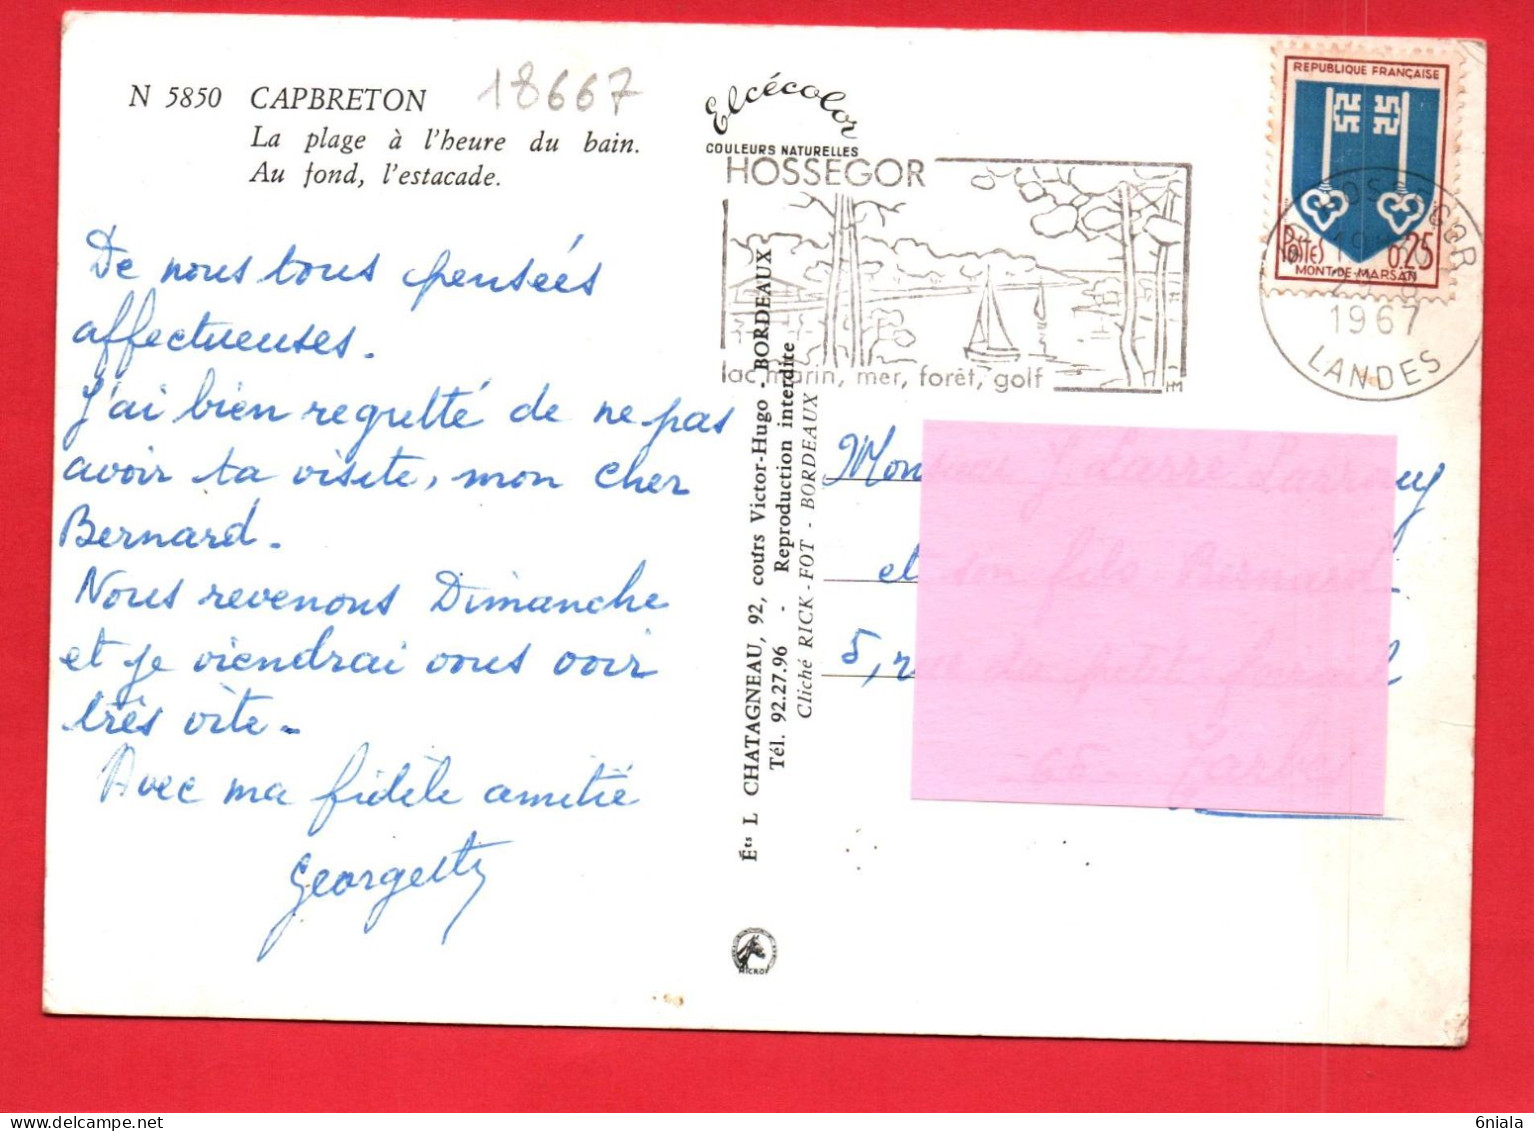 N 5850 CAPBRETON
18667
La plage à l'heure du bain.
Au fond, l'estacade.
De nous tous pensées
affectueuses.
J'ai bien regretté de ne pas
avoir ta visite, mon cher
Bernard.
Nous revenons Dimanche
et je viendrai vous voir
très vite.
Avec ma fidèle amitié
Georgette
Elcécolor
COULEURS NATURELLES
HOSSEGOR
lac marin, mer, forêt, golf
Éts L CHATAGNEAU, 92, cours Victor-Hugo - BORDEAUX
Tél. 92.27.96 - Reproduction interdite
Cliché RICK-FOT - BORDEAUX
REPUBLIQUE FRANÇAISE
Postes 0,25
MONT-DE-MARSAN
HOSSEGOR
1967
LANDES
Monsieur J Larré Larrouy
et son fils Bernard
5, rue du petit
65 - Tarbes
6niala